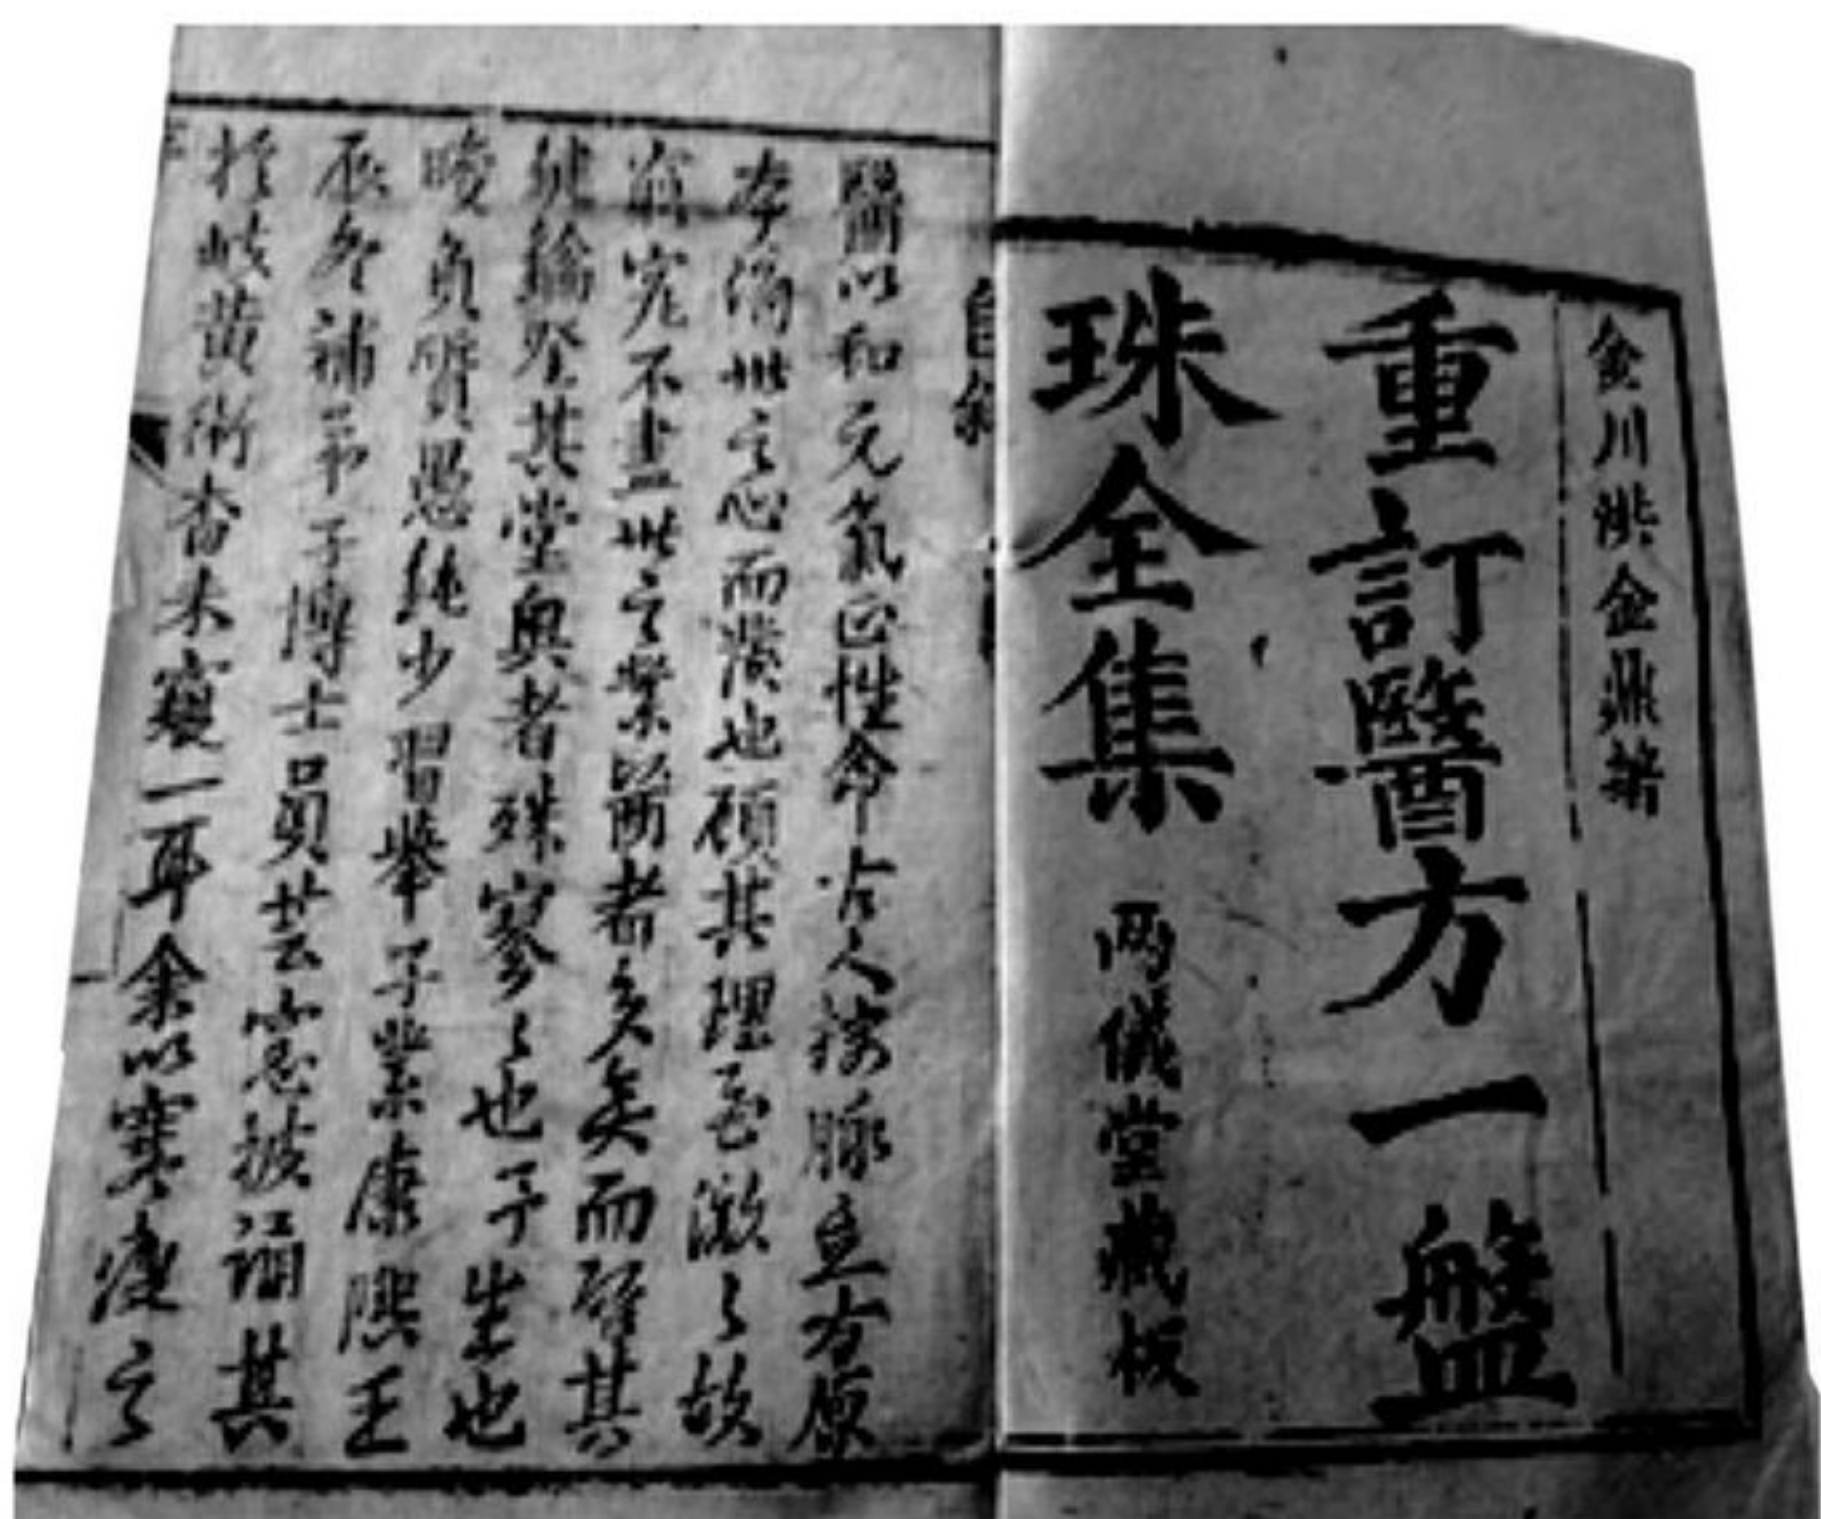 金川洪金鼎纂
重訂醫方一盤
珠全集
兩儀堂藏板
自敘
醫以和元氣正性命古人按脉立方原
本濟世之心而發也顧其理至微々故
窮究不盡世之業醫者多矣而膺其
登其堂奧者殊寥々也予生也
晚負質愚純少習舉子業康熙王
辰冬補弟子博士員芸窓披誦其
於岐黃術杳未窺一耳余以寒瘦之